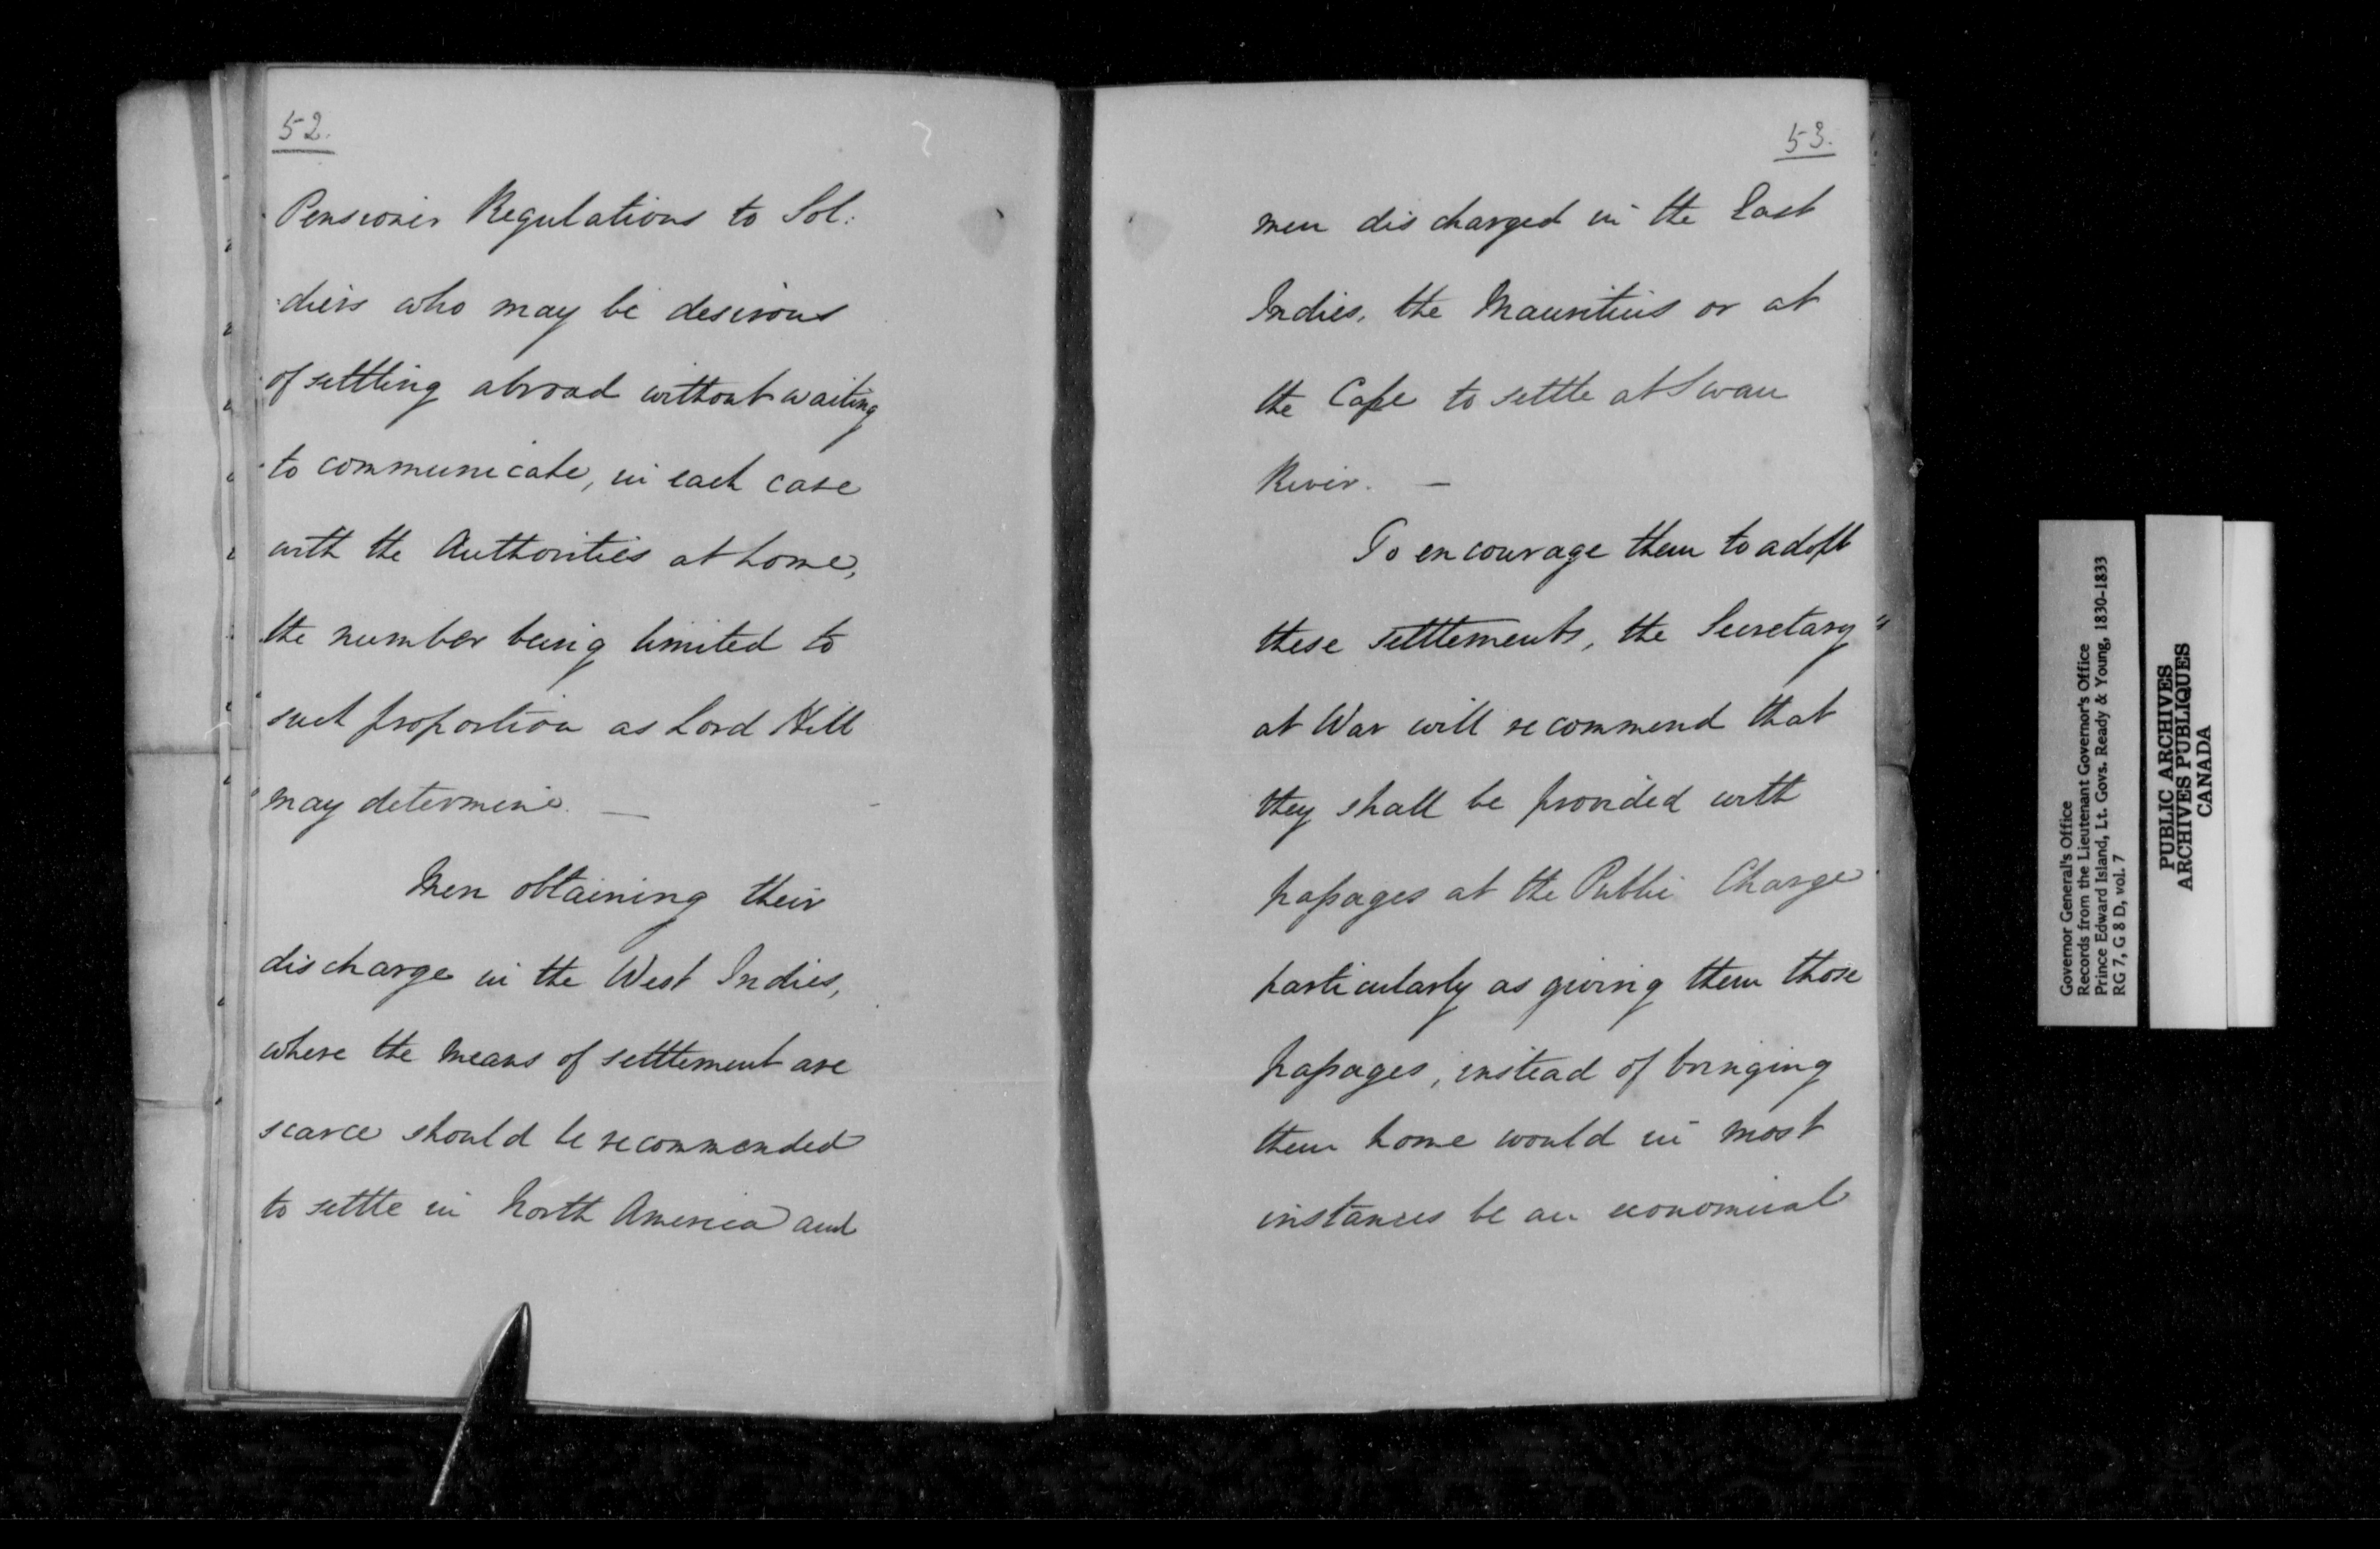 52.
Pensioner Regulations to Sol:
:diers who may be desirous
of settling abroad without waiting
to communicate, in each case
with the Authorities at home,
the number being limited to
such proportion as Lord Hill
may determine. —
Men obtaining their
discharge in the West Indies,
where the means of settlement are
scarce should be recommended
to settle in North America and
53.
men discharged in the East
Indies, the Mauritius or at
the Cape to settle at Swan
River. —
To encourage them to adopt
these settlements, the Secretary
at War will recommend that
they shall be provided with
passages at the Public Charge
particularly as giving them those
passages, instead of bringing
them home would in most
instances be an economical
Governor General's Office
Records from the Lieutenant Governor's Office
Prince Edward Island, Lt. Govs. Ready & Young, 1830-1833
RG 7, G 8 D, vol. 7
PUBLIC ARCHIVES
ARCHIVES PUBLIQUES
CANADA